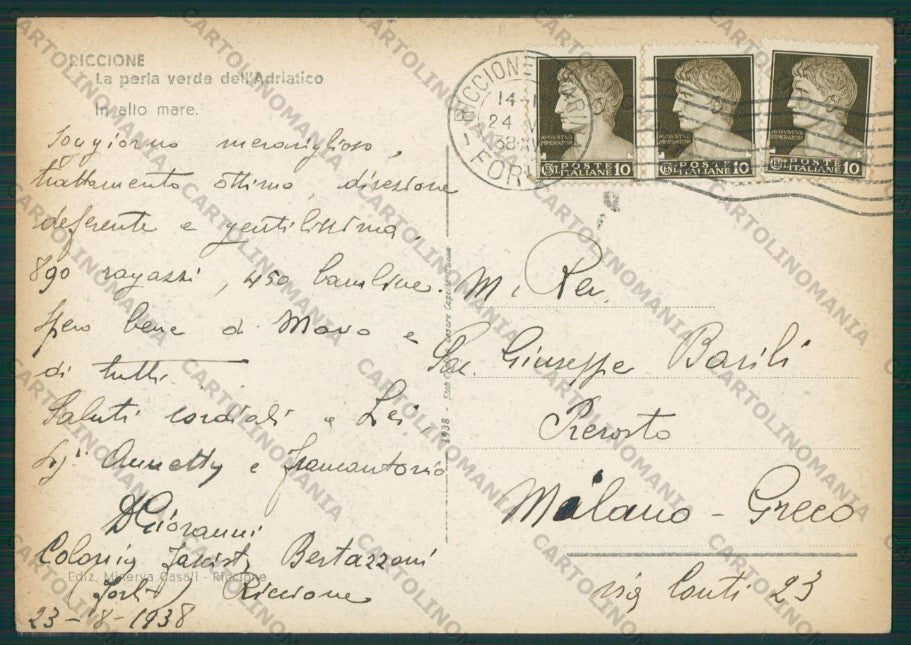 RICCIONE
La perla verde dell'Adriatico
In alto mare.
Soggiorno meraviglioso,
trattamento ottimo, direzione
deferente e gentilissima.
890 ragazzi, 450 bambine.
Spero bene di Mario e
di tutti.
Saluti cordiali a Lei
Annetty e
D Giovanni
Colonia Bertazzoni
(Forlì) Riccione
23-8-1938
Ediz. Minerva Casali - Riccione
1938 - Stab. Cesare
RICCIONE
14
24
38 XVI
FORLI
AVGVSTVS
IMPERATOR
CENT. POSTE ITALIANE 10
AVGVSTVS
IMPERATOR
CENT. POSTE ITALIANE 10
AVGVSTVS
IMPERATOR
CENT. POSTE ITALIANE 10
M. Rev.
Sac. Giuseppe Basili
Prevosto
Milano - Greco
via Conti 23
CARTOLINOMANIA